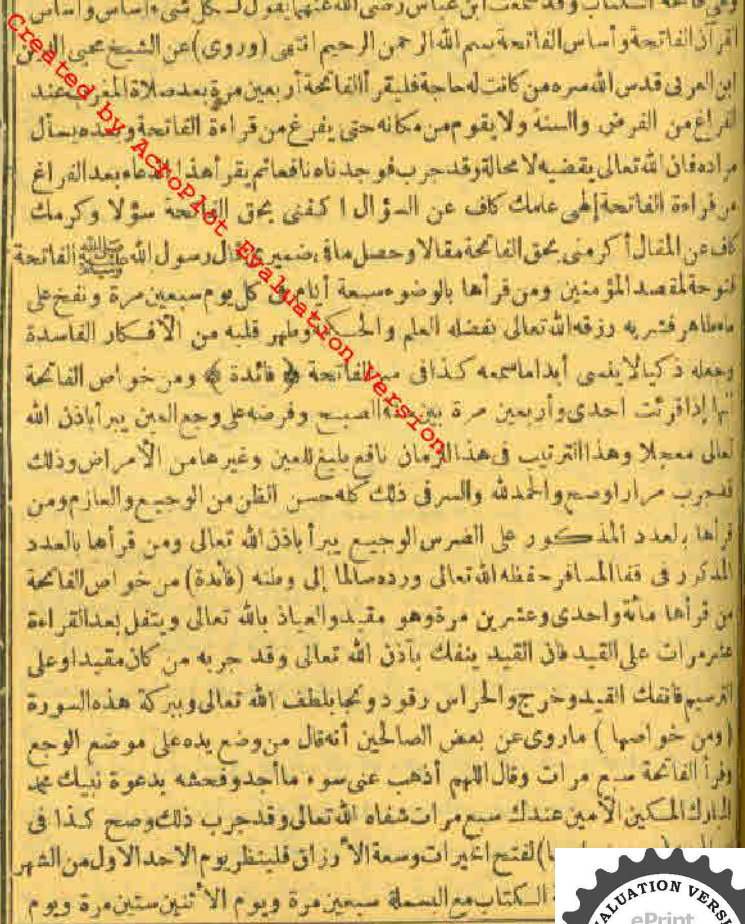 وهي فاتحة الكتاب وقد سمعت ابن عباس رضي الله عنهما يقول لكل شيء أساس وأساس
القرآن الفاتحة وأساس الفاتحة بسم الله الرحمن الرحيم انتهى (وروى) عن الشيخ محيي الدين
ابن العربى قدس الله سره من كانت له حاجة فليقرأ الفاتحة أربعين مرة بعد صلاة المغرب عند
الفراغ من الفرض والسنة ولا يقوم من مكانه حتى يفرغ من قراءة الفاتحة وبعده يسأل
مراده فان الله تعالى يقضيه لا محالة وقد جرب فوجدناه نافعا ثم يقرأ هذا الدعاء بعد الفراغ
من قراءة الفاتحة إلهى علمك كاف عن السؤال ا كفنى بحق الفاتحة سؤلا وكرمك
كاف عن المقال أكرمنى بحق الفاتحة مقالا وحصل مافى ضميرى قال رسول الله صلى الله عليه وسلم الفاتحة
فتوحة لمقصد المؤمنين ومن قرأها بالوضوء سبعة أيام فى كل يوم سبعين مرة ونفخ على
ماء طاهر فشربه رزقه الله تعالى بفضله العلم والحكمة وطهر قلبه من الأفكار الفاسدة
وجعله ذكيا لا ينسى أبدا ما سمعه كذا فى سر الفاتحة ﴿ فائدة ﴾ ومن خواص الفاتحة
انها إذا قرئت احدى وأربعين مرة بين سنة الصبح وفرضه على وجع العين يبرأ باذن الله
تعالى معجلا وهذا الترتيب فى هذا الزمان نافع بليغ للعين وغيرها من الأمراض وذلك
قد جرب مرارا وصح والحمد لله والسر فى ذلك كله حسن الظن من الوجيع والعازم ومن
قرأها بالعدد المذكور على الضرس الوجيع يبرأ باذن الله تعالى ومن قرأها بالعدد
المذكور فى قفا المسافر حفظه الله تعالى ورده سالما إلى وطنه (فائدة) من خواص الفاتحة
من قرأها مائة واحدى وعشرين مرة وهو مقيد والعياذ بالله تعالى ويتفل بعد القراءة
عشر مرات على القيد فان القيد ينفك باذن الله تعالى وقد جربه من كان مقيدا وعلى
الترسيم فانفك القيد وخرج والحراس رقود ونجا بلطف الله تعالى وببركة هذه السورة
(ومن خواصها) ماروى عن بعض الصالحين أنه قال من وضع يده على موضع الوجع
وقرأ الفاتحة سبع مرات وقال اللهم أذهب عنى سوء ما أجد وفحشه بدعوة نبيك محمد
المبارك المكين الأمين عندك سبع مرات شفاه الله تعالى وقد جرب ذلك وصح كذا فى
لفتح الخيرات وسعة الأرزاق فلينظر يوم الاحد الاول من الشهر
الكتاب مع البسملة سبعين مرة ويوم الاثنين ستين مرة ويوم
Created by AcroPlot Evaluation Version
EVALUATION VERSION
ePrint